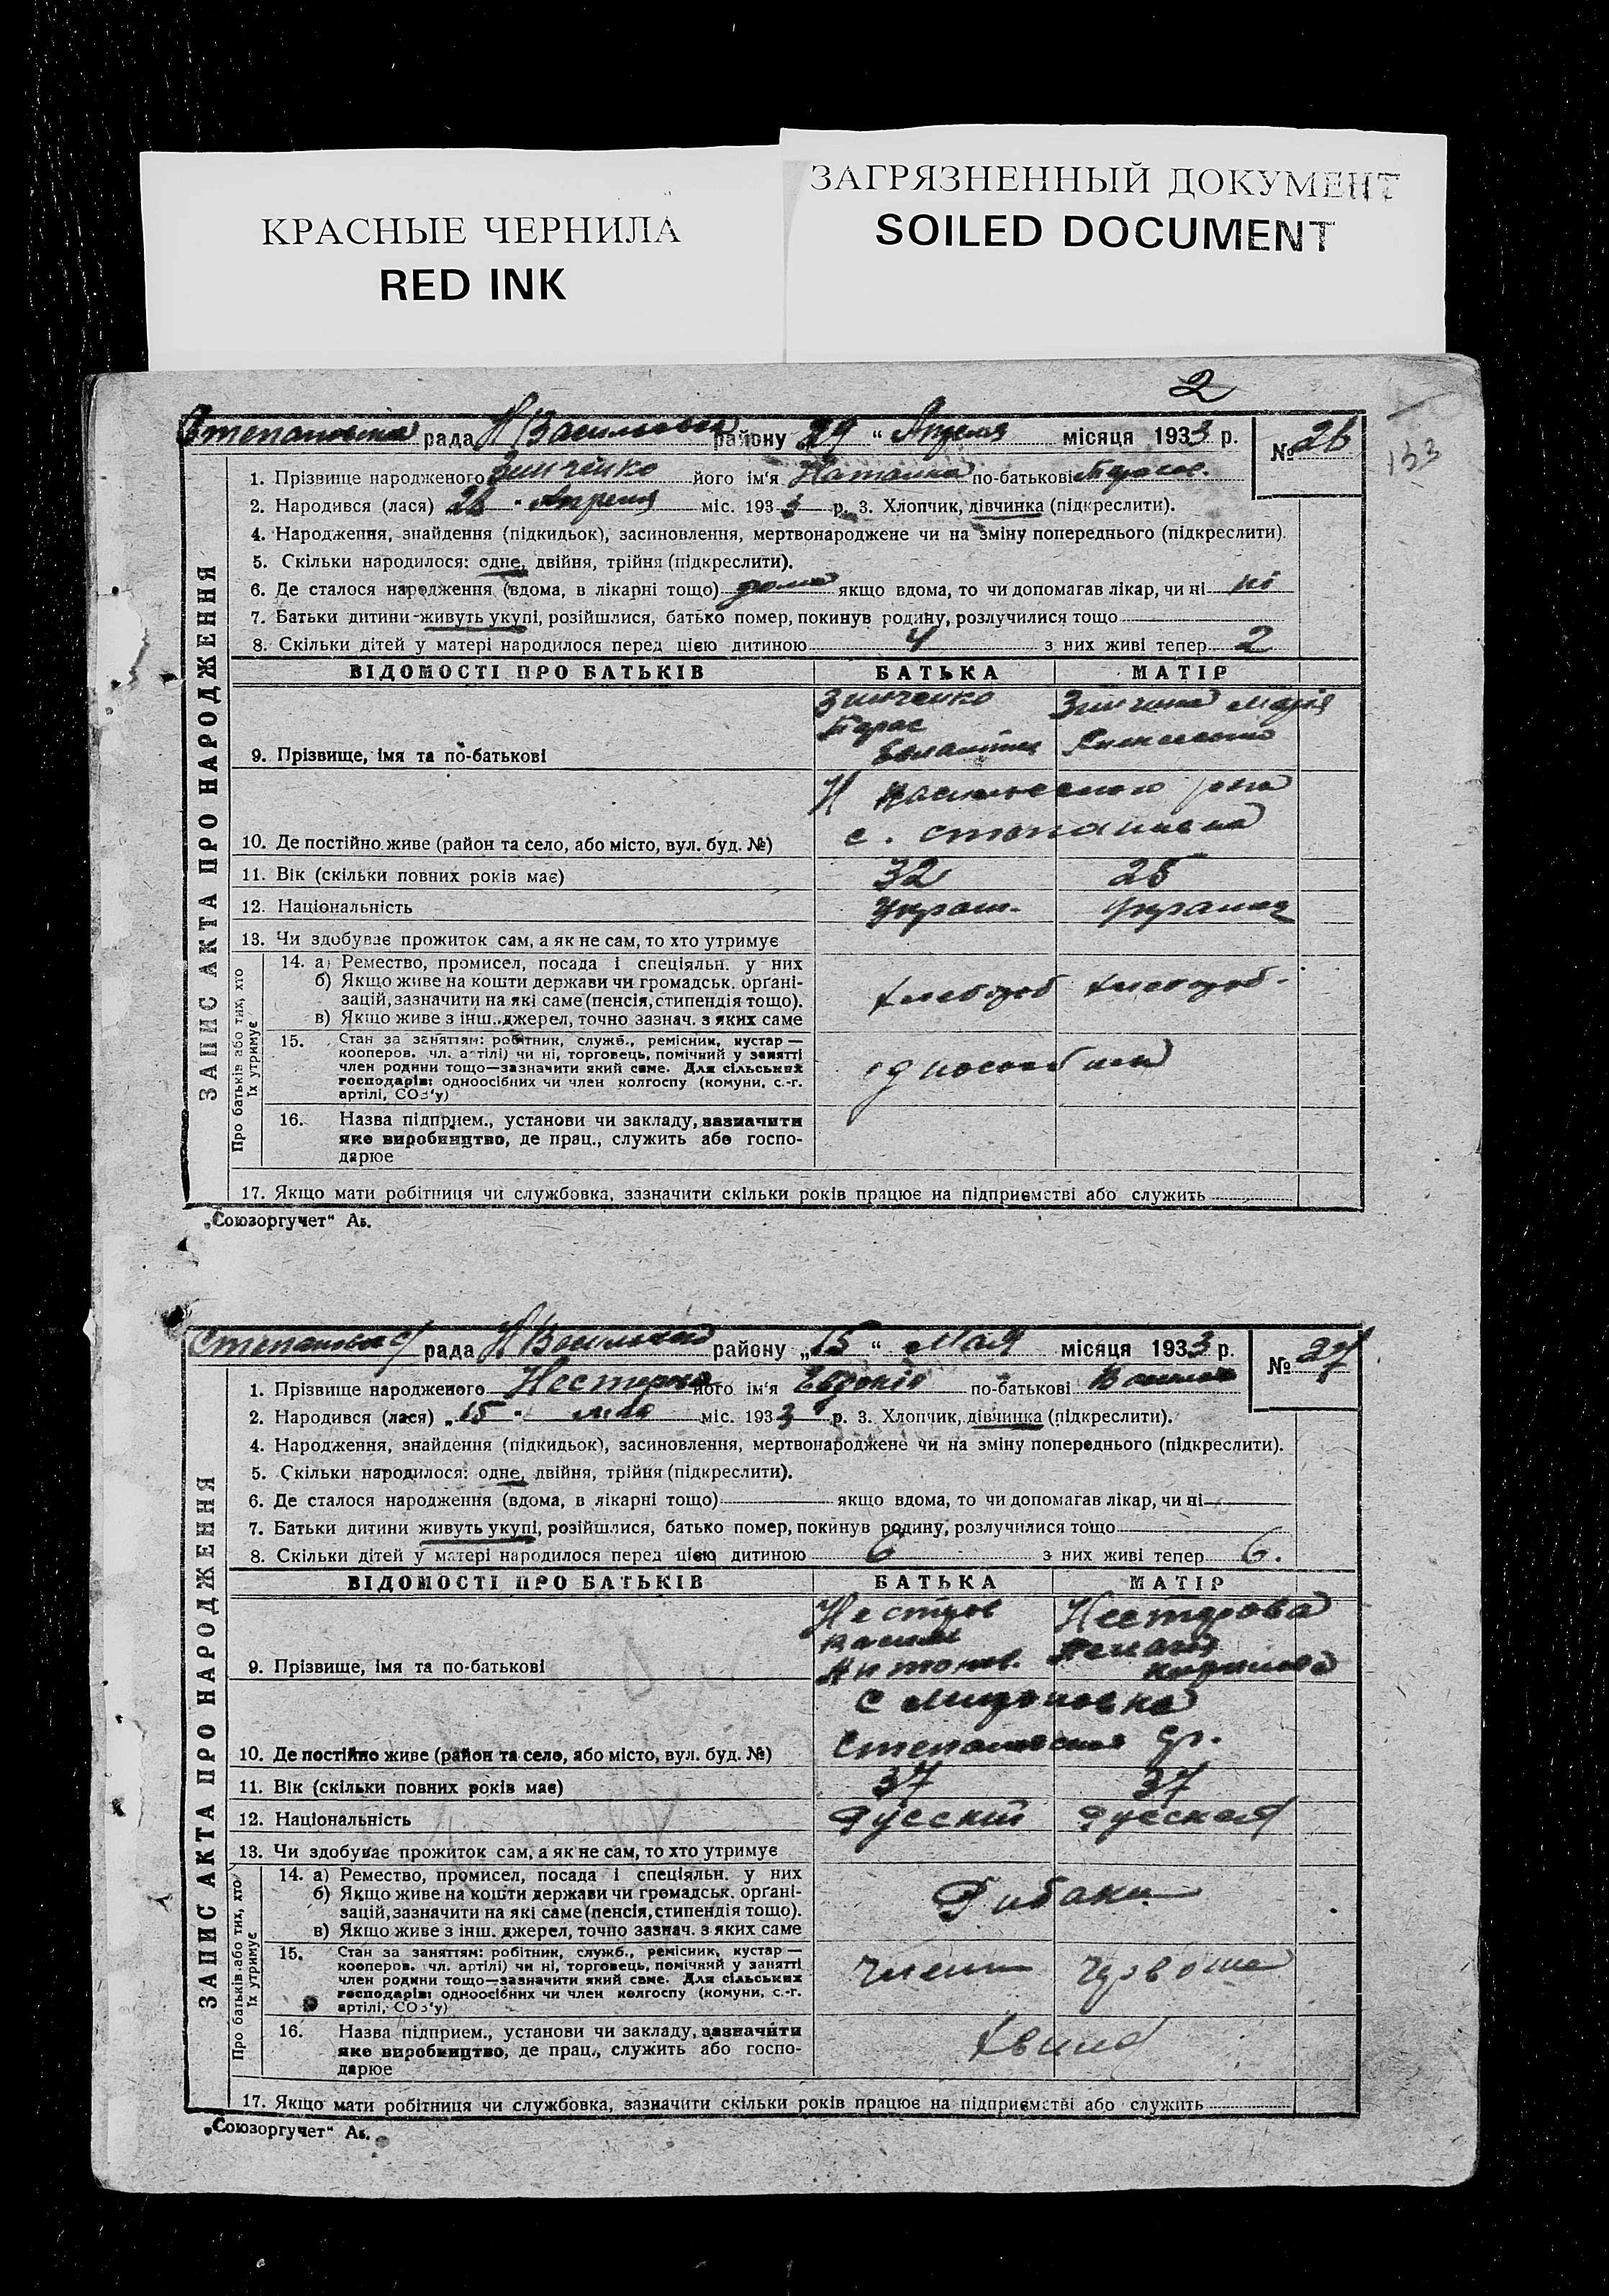 КРАСНЫЕ ЧЕРНИЛА
RED INK
ЗАГРЯЗНЕННЫЙ ДОКУМЕНТ
SOILED DOCUMENT
2
133
рада Н Васильевка району „29“ Апреля місяця 1933 р.
№ 26
ЗАПИС АКТА ПРО НАРОДЖЕННЯ
1. Прізвище народженого Зинченко його ім'я Наталка по-батькові Тарасов.
2. Народився (лася) 26 " Апреля міс. 1933 р. 3. Хлопчик, дівчинка (підкреслити).
4. Народження, знайдення (підкидьок), засиновлення, мертвонароджене чи на зміну попереднього (підкреслити).
5. Скільки народилося: одне, двійня, трійня (підкреслити).
6. Де сталося народження (вдома, в лікарні тощо) дома якщо вдома, то чи допомагав лікар, чи ні ні
7. Батьки дитини живуть укупі, розійшлися, батько помер, покинув родину, розлучилися тощо
8. Скільки дітей у матері народилося перед цією дитиною 4 з них живі тепер 2
ВІДОМОСТІ ПРО БАТЬКІВ БАТЬКА МАТІР
Зинченко
Тарас
Марія
9. Прізвище, імя та по-батькові
Н Васильевского
с. Степановка
10. Де постійно живе (район та село, або місто, вул. буд. №)
11. Вік (скільки повних років має) 32 25
12. Національність Украин.
13. Чи здобуває прожиток сам, а як не сам, то хто утримує
Про батьків або тих, хто їх утримує
14. а) Ремество, промисел, посада і спеціяльн. у них
б) Якщо живе на кошти держави чи громадськ. орґані-
зацій, зазначити на які саме (пенсія, стипендія тощо).
в) Якщо живе з інш. джерел, точно зазнач. з яких саме
хлебороб хлебороб.
15. Стан за заняттям: робітник, служб., ремісник, кустар —
кооперов. чл. артілі) чи ні, торговець, помічний у занятті
член родини тощо—зазначити який саме. Для сільських
господарів: одноосібних чи член колгоспу (комуни, с.-г.
артілі, СОЗ'у)
16. Назва підприєм., установи чи закладу, зазначити
яке виробництво, де прац., служить або госпо-
дарює
17. Якщо мати робітниця чи службовка, зазначити скільки років працює на підприємстві або служить
„Союзоргучет“ Аб.
рада Н Васильевка району „15“ Мая місяця 1933 р.
№ 27
ЗАПИС АКТА ПРО НАРОДЖЕННЯ
1. Прізвище народженого Нестерова його ім'я Евдокія по-батькові
2. Народився (лася) „15" мая міс. 1933 р. 3. Хлопчик, дівчинка (підкреслити).
4. Народження, знайдення (підкидьок), засиновлення, мертвонароджене чи на зміну попереднього (підкреслити).
5. Скільки народилося: одне, двійня, трійня (підкреслити).
6. Де сталося народження (вдома, в лікарні тощо) якщо вдома, то чи допомагав лікар, чи ні
7. Батьки дитини живуть укупі, розійшлися, батько помер, покинув родину, розлучилися тощо
8. Скільки дітей у матері народилося перед цією дитиною 6 з них живі тепер 6.
ВІДОМОСТІ ПРО БАТЬКІВ БАТЬКА МАТІР
Нестеров Нестерова
Василь
Антонов.
9. Прізвище, імя та по-батькові
с
10. Де постійно живе (район та село, або місто, вул. буд. №)
11. Вік (скільки повних років має) 37 37
12. Національність Русский Русская
13. Чи здобуває прожиток сам, а як не сам, то хто утримує
Про батьків або тих, хто їх утримує
14. а) Ремество, промисел, посада і спеціяльн. у них
б) Якщо живе на кошти держави чи громадськ. орґані-
зацій, зазначити на які саме (пенсія, стипендія тощо).
в) Якщо живе з інш. джерел, точно зазнач. з яких саме
Рибаки
15. Стан за заняттям: робітник, служб., ремісник, кустар —
кооперов. чл. артілі) чи ні, торговець, помічний у занятті
член родини тощо—зазначити який саме. Для сільських
господарів: одноосібних чи член колгоспу (комуни, с.-г.
артілі, СОЗ'у)
член
16. Назва підприєм., установи чи закладу, зазначити
яке виробництво, де прац., служить або госпо-
дарює
17. Якщо мати робітниця чи службовка, зазначити скільки років працює на підприємстві або служить
„Союзоргучет“ Аб.